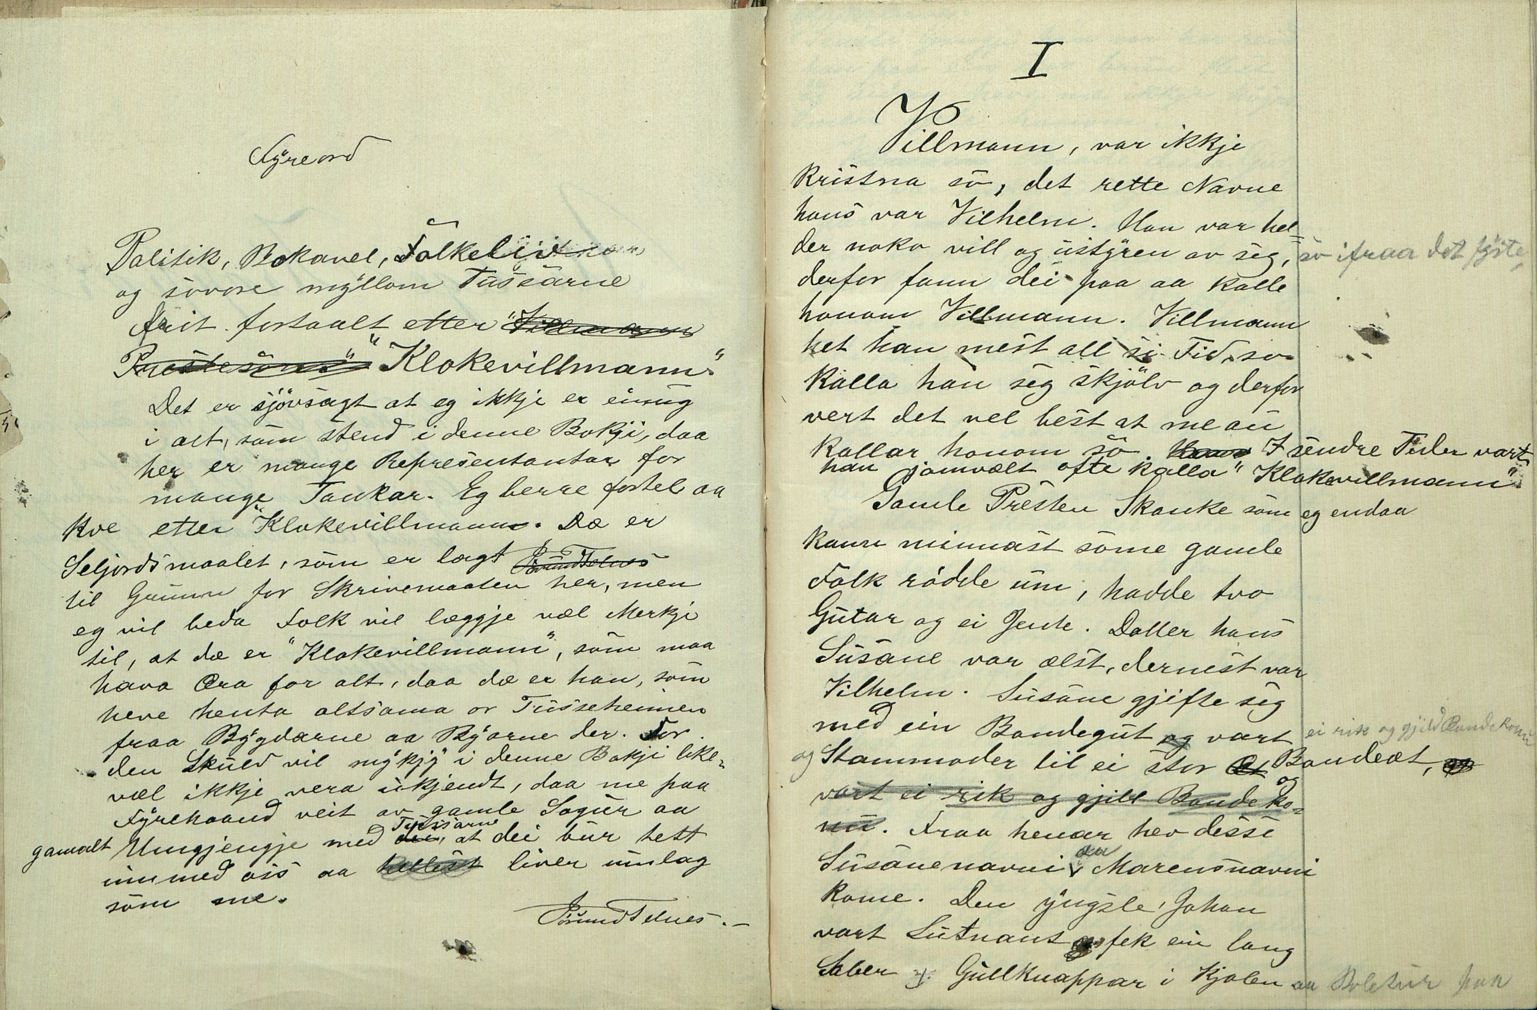 Fyreord
Politik, Bokavel, Folkeliv
og sovore myllom Tussarne
frit fortaalt etter "Villmann
Prestesons" "Klokevillmann"
Det er sjövsagt at eg ikkje er einug
i alt, som stend i denne Bokji, daa
her er mange Representantar for
mange Tankar. Eg berre fortel aa
kve etter "Klokevillmann. Dæ er
Seljordsmaalet, som er lagt
til Grunn for Skrivemaaten her, men
eg vil beda Folk vil leggje væl Merkji
til, at dæ er "Klokevillmann", som maa
hava Æra for alt, daa dæ er han, som
heve henta altsama or Tusseheimen
fraa Bygdarne aa Byarne der. For
den Skuld vil mykjy i denne Bokji like-
væl ikkje vera ukjendt, daa me paa
Fyrehaand veit av gamle Sogur aa
gamalt Umgjengje med Tussarne, at dei bur tett
innmed oss aa liver umlag
som me.
Telnes.-
I
Villmann, var ikkji
kristna so, det rette Navne
hans var Vilhelm. Han var hel-
der noko vill og ustyren av seg, so ifraa det fyste,
derfor fann dei paa aa kalle
honom Villmann. Villmann
het han mest all si Tid, so
kalla han seg skjölv og derfor
vert det vel best at me au
kallar honom so. I sendre Tider vart
han jamvælt ofte kalla "Klokevillmann"
Gamle Presten Skanke som eg endaa
kann minnast some gamle
Folk rödde um, hadde tvo
Gutar og ei Jente. Dotter hans
Susane var ælst, dernest var
Vilhelm. Susane gjifte seg
med ein Bondegut og vart ei rik og gjild Bondekone
og Stammoder til ei stor Bondeæt, og
vart ei rik og gjild Bondeko-
ne. Fraa henar hev dissi
Susanenavni aa Marensnavni
kome. Den yngste, Johan
vart Lutnant og fek ein lang
Saber og Gullknappar i Kjolen aa